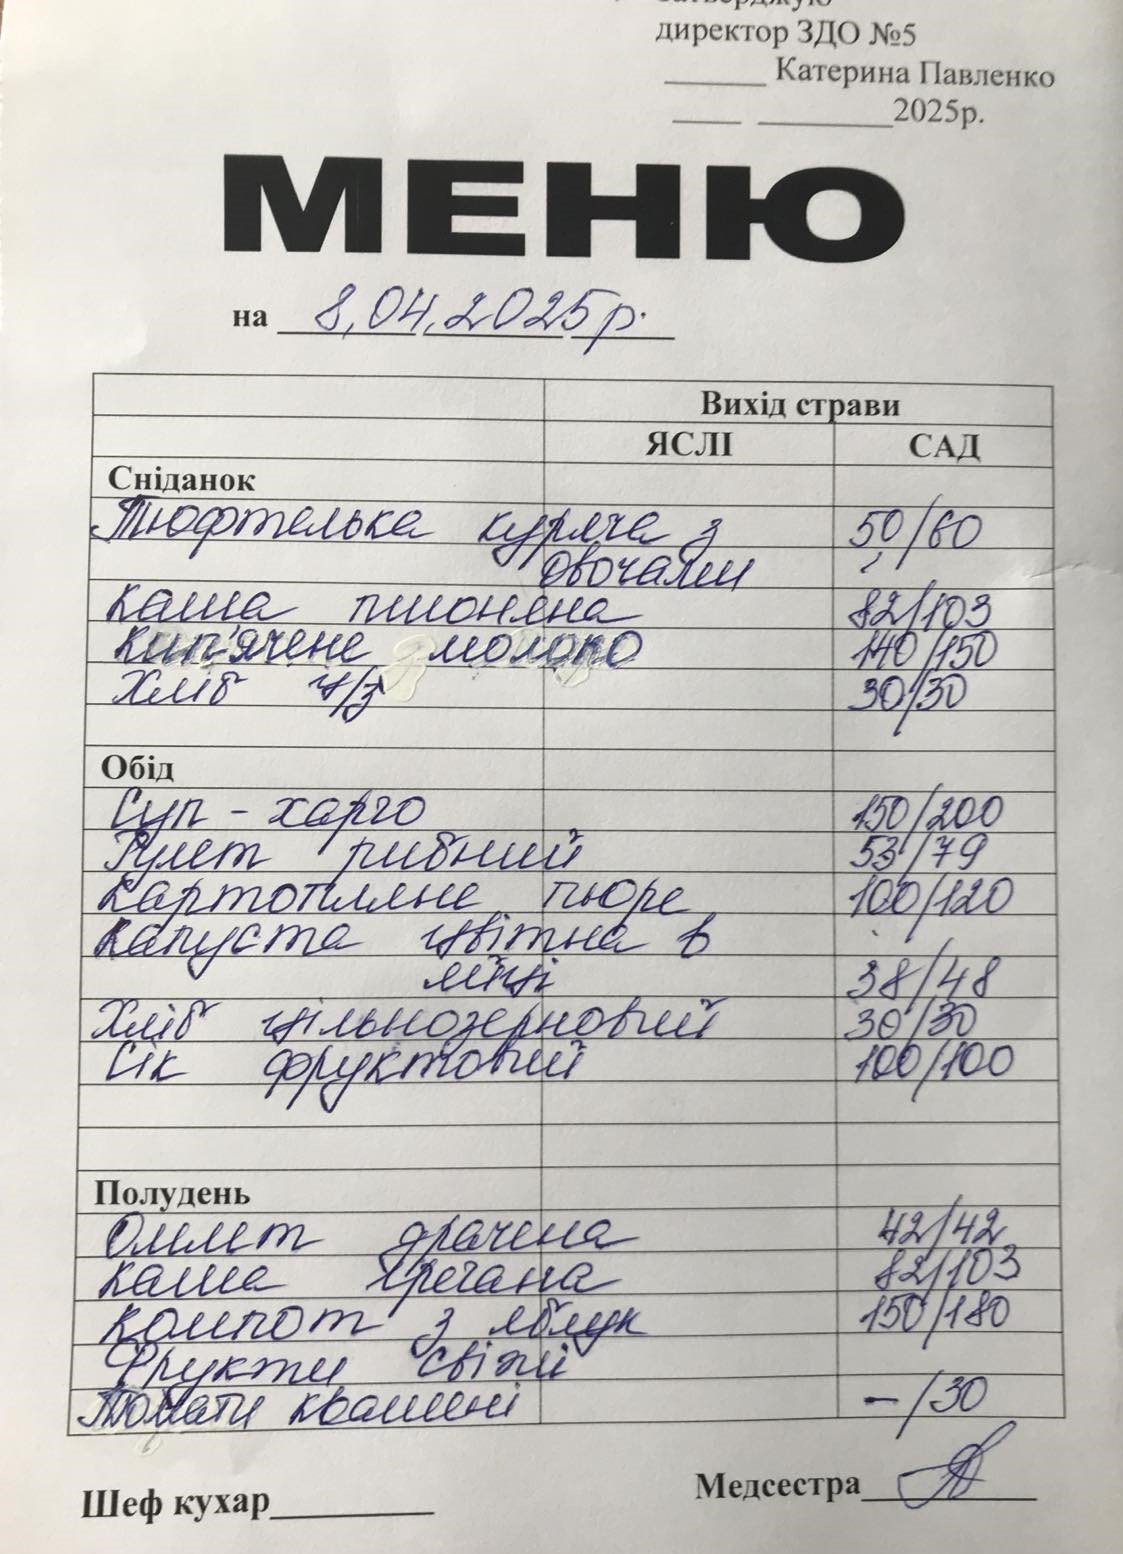 Затверджую
директор ЗДО №5
______ Катерина Павленко
____ ________2025р.
МЕНЮ
на 8,04,2025р.
Вихід страви
ЯСЛІ САД
Сніданок
Тюфтелька куряча з 50/60
овочами
Каша пшоняна 82/103
Кип'ячене молоко 140/150
Хліб ц/з 30/30
Обід
Суп - харчо 150/200
Рулет рибний 53/79
Картопляне пюре 100/120
Капуста цвітна в
яйці 38/48
Хліб цільнозерновий 30/30
Сік фруктовий 100/100
Полудень
Омлет драчена 42/42
Каша гречана 82/103
Компот з яблук 150/180
Фрукти свіжі
Томати квашені -/30
Медсестра
Шеф кухар